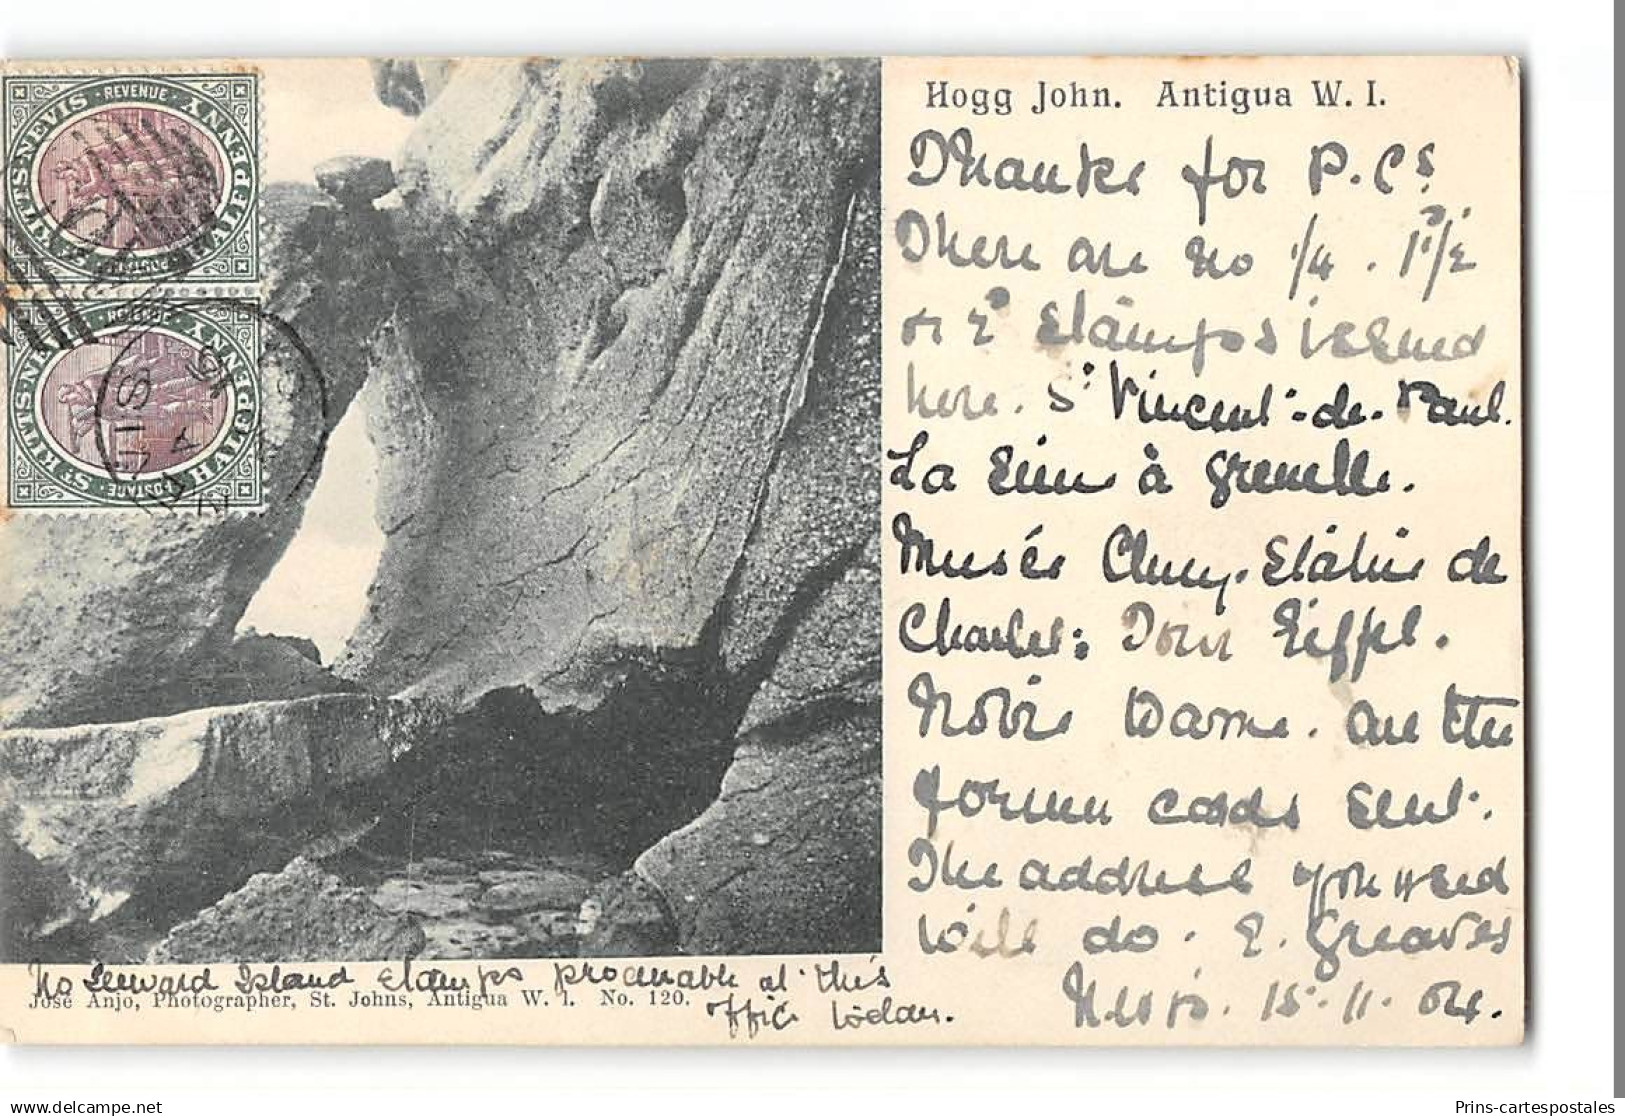 Hogg John. Antigua W. I.
Thanks for P. Cs.
There are no 1/4. 1 1/2
or 2d Stamps issued
here. St Vincent-de-Paul.
La Seine à Grenelle.
Musée Cluny. Statue de
Charles: Tour Eiffel.
Notre Dame. are the
former cards sent.
The address you used
will do. E. Greaves
Nevis. 15.11.04.
No Leeward Island Stamps procurable at this
office today.
José Anjo, Photographer, St. Johns, Antigua W. I. No. 120.
ST KITTS-NEVIS
REVENUE
HALFPENNY
POSTAGE
ST KITTS-NEVIS
REVENUE
HALFPENNY
POSTAGE
delcampe.net
Prins-cartespostales